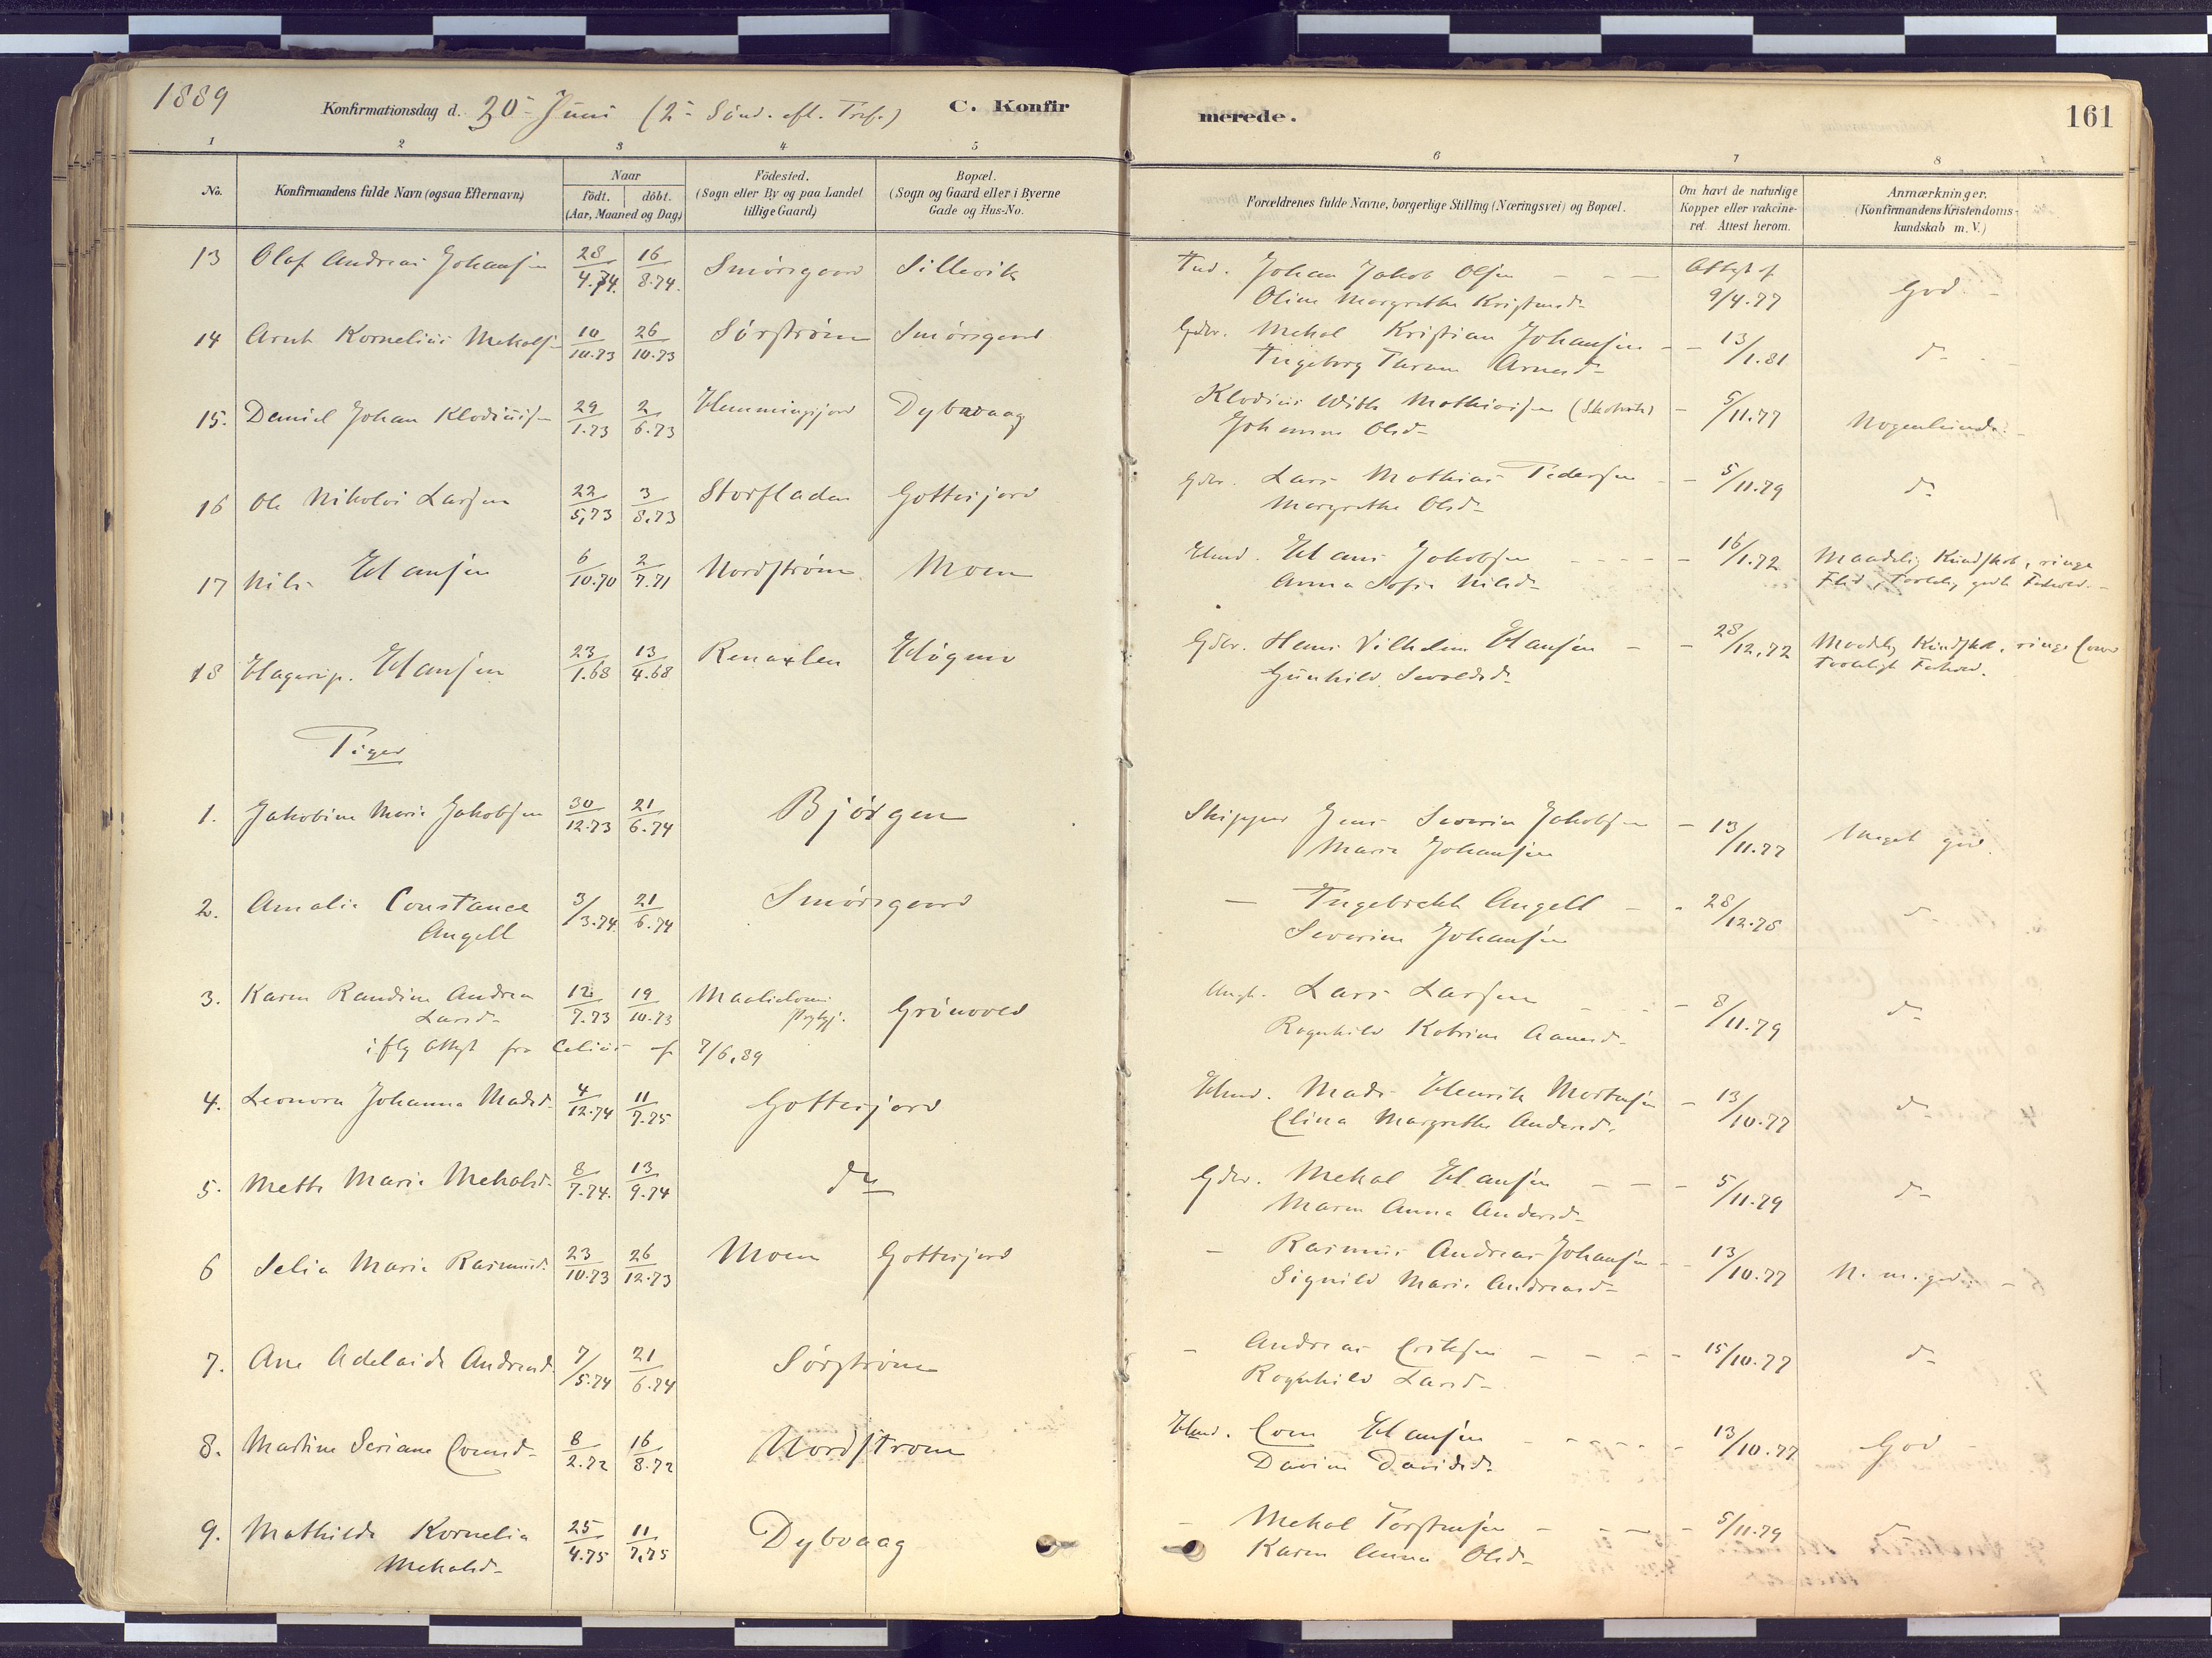 1889
Konfirmationsdag d. 30- Juni (2- Sönd. eft. Tref.)
C. Konfir
merede.
161
1 2 3 4 5 6 7 8
No.
Konfirmandens fulde Navn (ogsaa Efternavn)
Naar
födt. döbt.
(Aar, Maaned og Dag)
Födested.
(Sogn eller By og paa Landet
tillige Gaard)
Bopæl.
(Sogn og Gaard eller i Byerne
Gade og Hus-No.
Forældrenes fulde Navne, borgerlige Stilling (Næringsvei) og Bopæl.
Om havt de naturlige
Kopper eller vakcine-
ret. Attest herom.
Anmærkninger.
(Konfirmandens Kristendoms-
kundskab m. V.)
13 Olaf Andreas Johansen 28/4.74. 16/8.74. Smörsgaard Sillevik Ind. Johan Jakob Olsen - - - Attest af 9/4.77 God -
Oline Margrethe Kristensd-
14 Arnt Kornelius Mekals- 10/10.73 26/10.73 Sörström Smörsgaard Gdbr. Mekal Kristian Johansen - - 13/1.81 do -
Ingeborg Arnesd-
15. Daniel Johan Klodius- 29/1.73 2/6.73 Hemmingsjord Dybvaag Klodius With Mathiasen - 5/11.77 Nogenlunde -
Johanna Olsd-
16 Ole Nikolai Larsen 22/5,73 3/8.73 Storfladen Gottesjord Gdbr. Lars Mathias Pedersen - - 5/11.79 do
Margrethe Olsd-
17 Nils Hansen 6/10.70 2/7.71 Nordström Moen Hmd. Hans Jakobsen - - - - 16/1.72 Maadelig Kundskab, ringe
Anna Sofie Nilsd- Flid, Forhold -
18 Hagerup. Hansen 23/1.68 13/4.68 Gdbr. Hans Vilhelm Hansen - - 28/12.72 Maadelig Kundskab, ringe Evner
Gunhild Forhold.
Piger
1. Jakobine Marie Jakobsen 30/12.73 21/6.74 Björgen Skipper Jens Severin Jakobsen - 13/11.77 Meget god.
Marie Johansen
2. Amalie Constance 3/3.74. 21/6.74 Smörsgaard - Ingebrekt Angell - - 28/12.78 do
Angell Severine Johansen
3. Karen Randine Andrea 12/7.73 19/10.73 Grönvold Lars Larsen - 8/11.79 do
Larsd- Ragnhild Katrine
iflg Attest fra af 7/6.89
4. Leonora Johanna Madsd- 4/12.74 11/7.75 Gottesjord Hmd. Mads Henrik Mortensen - 13/10.77 do
Elina Margrethe Andersd-
5. Mette Marie Mekalsd- 8/7.74. 13/9.74 do Gdbr. Mekal Hansen - - - 5/11.79 do
Maren Anna Andersd-
6 Selia Marie Rasmusd. 23/10.73 26/12.73 Moen Gottesjord - Rasmus Andreas Johansen - 13/10.77 N. m. god. -
Signild Marie Andreasd-
7. Ane Adelaide Andreasd. 7/5.74 21/6.74 Sörström - Andreas Eriksen - - - - 15/10.77 do
Ragnhild Larsd-
8. Martine Seriane Conrd- 8/2.72 16/8.72 Nordström Hmd. Hansen - - - - 13/10.77 God -
Davidsd.
9. Mathilde Kornelia 25/4.75 11/7.75 Dybvaag - Mekal Torstensen - - - - 5/11.79 do
Mekalsd- Karen Anna Olsd-